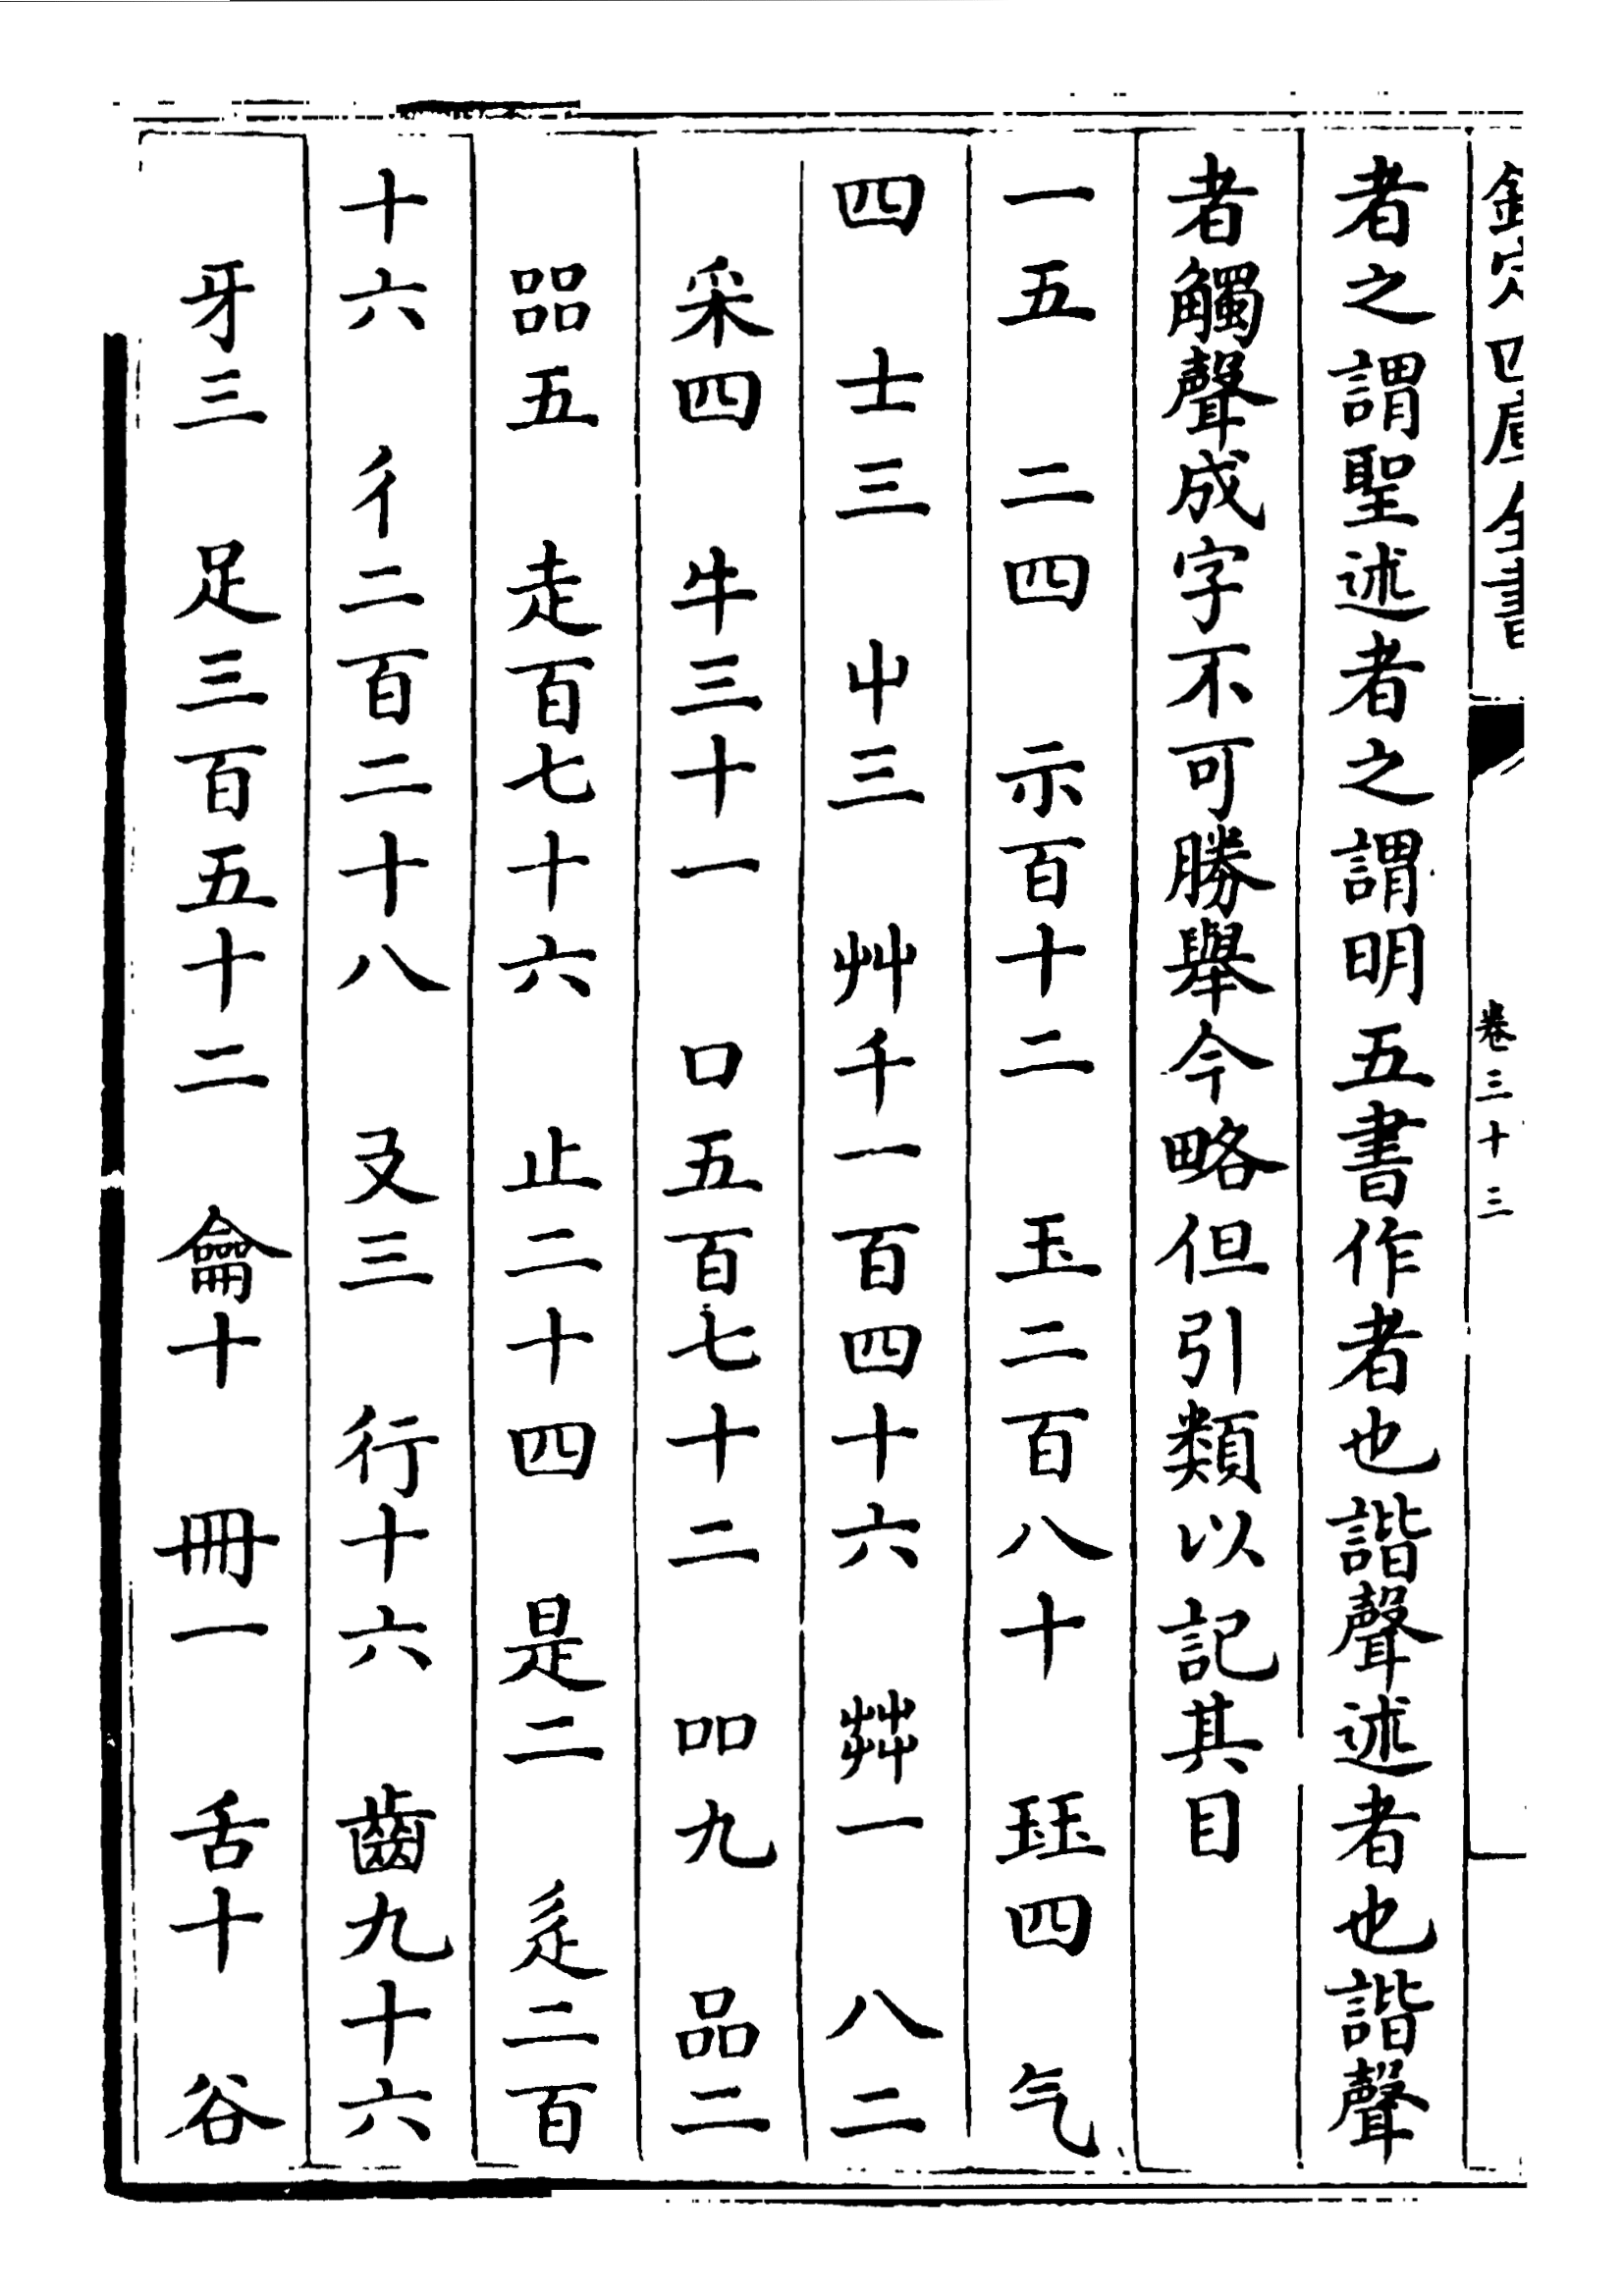 欽定四庫全書
卷三十三
者之謂聖述者之謂明五書作者也諧聲述者也諧聲
者觸聲成字不可勝舉今略但引類以記其目
一五　二四　示百十二　玉二百八十　玨四　气
四　士三　屮三　艸千一百四十六　茻一　八二
釆四　牛三十一　口五百七十二　吅九　品二
㗊五　走百七十六　止二十四　是二　辵二百
十六　彳二百二十八　㕛三　行十六　齒九十六
牙三　足三百五十二　龠十　冊一　舌十　谷